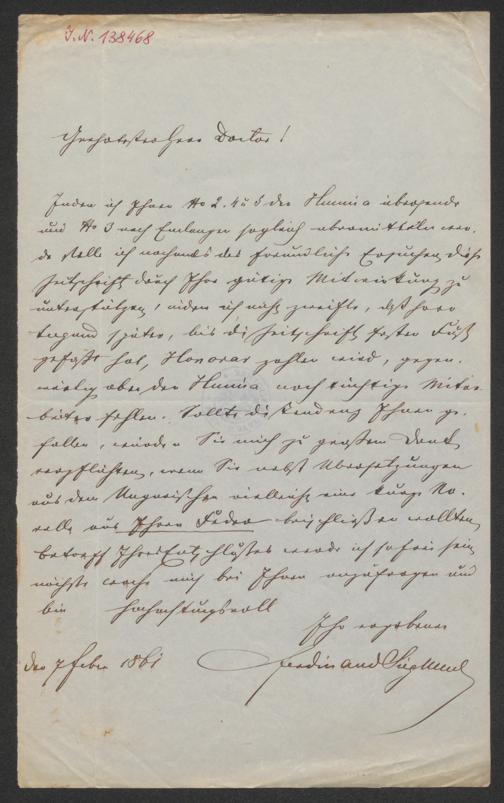 I.N. 138468
Geehrtester Herr Doctor!
Indem ich Ihnen No 2. 4 u 5 der Hunnia übersende
und No 3 nach Einlangen sogleich übermitteln wer-
de stelle ich nochmals das freundliche Ersuchen diese
Zeitschrift durch Ihre gütige Mitwirkung zu
unterstützen, indem ich nicht zweifle, daß Herr
später, bis die Zeitschrift festen Fuß
gefaßt hat, Honorar zahlen wird, gegen-
wärtig aber der Hunnia noch tüchtige Mitar-
beiter fehlen. Sollte die Tendenz Ihnen ge-
fallen, würden Sie mich zu großem Dank
verpflichten, wenn Sie nebst Übersetzungen
aus dem Ungarischen vielleicht eine kurze No-
velle aus Ihrer Feder beischließen wollten.
Betreff Ihres Entschlußes werde ich so frei sein
nächste Woche mich bei Ihnen anzufragen und
bin hochachtungsvoll
Ihr ergebener
den 7 Feber 1861 Ferdinand Siegmund